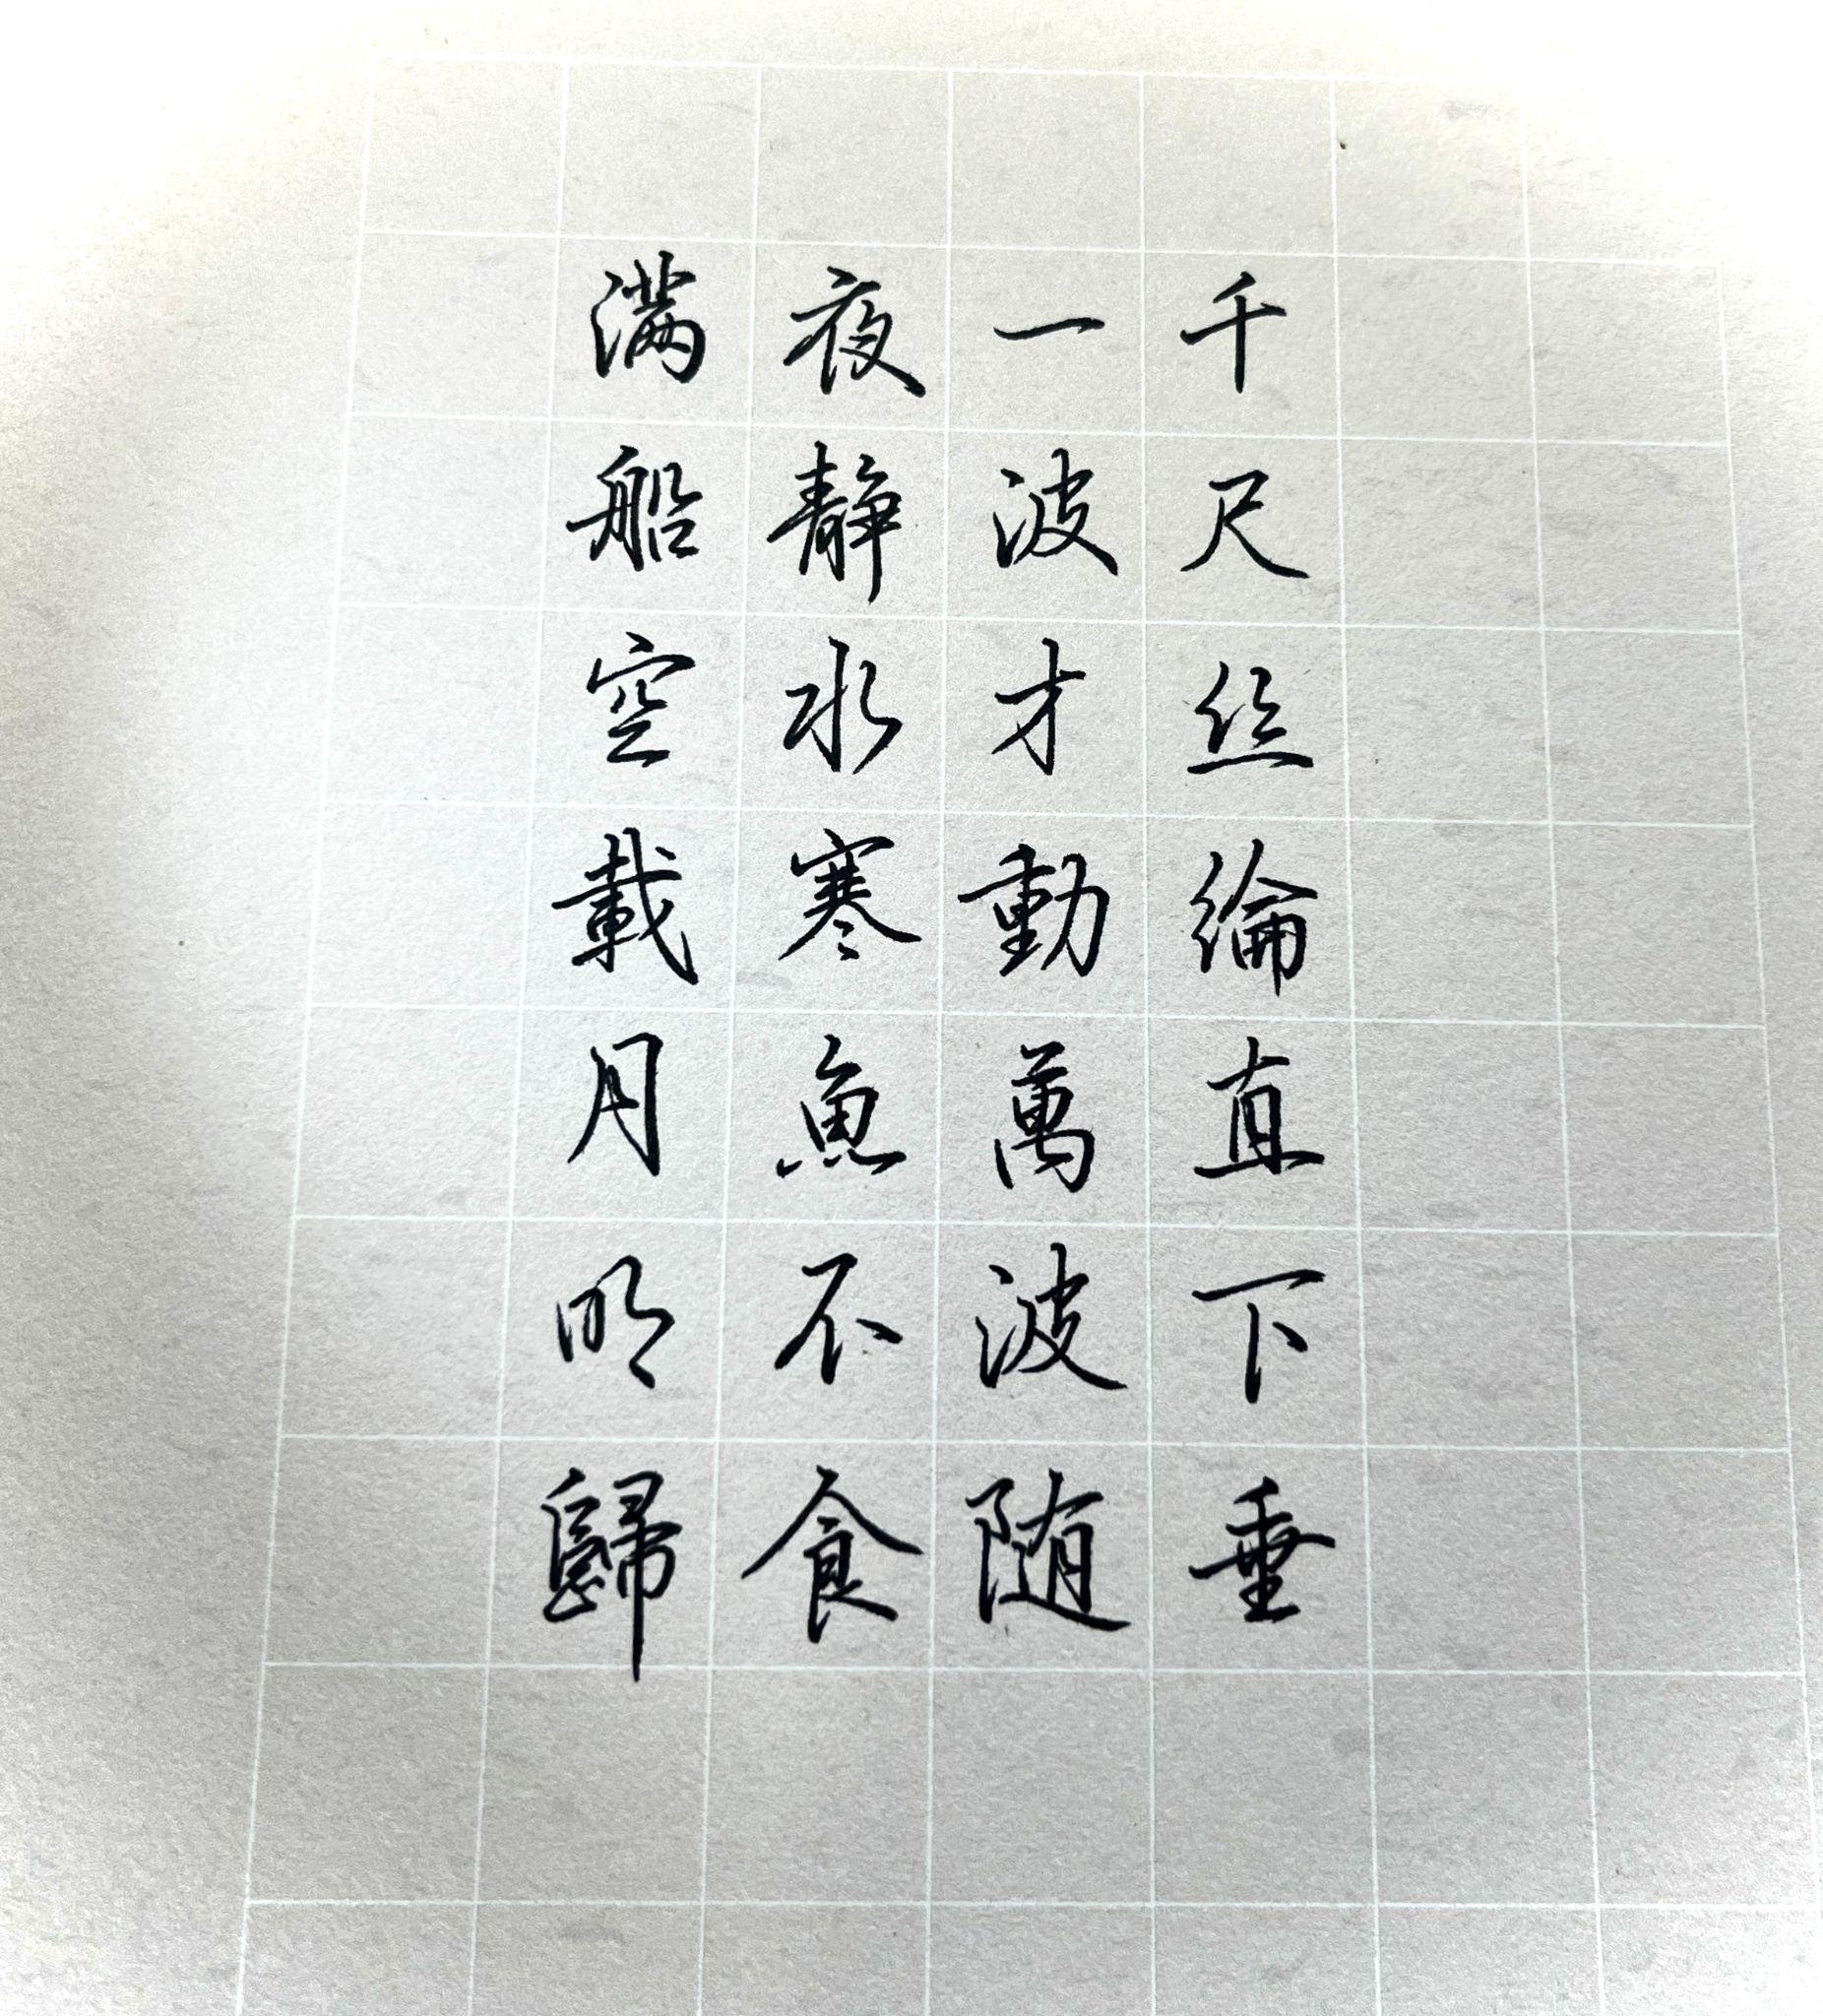 千尺丝綸直下垂
一波才動萬波随
夜静水寒魚不食
满船空載月明歸